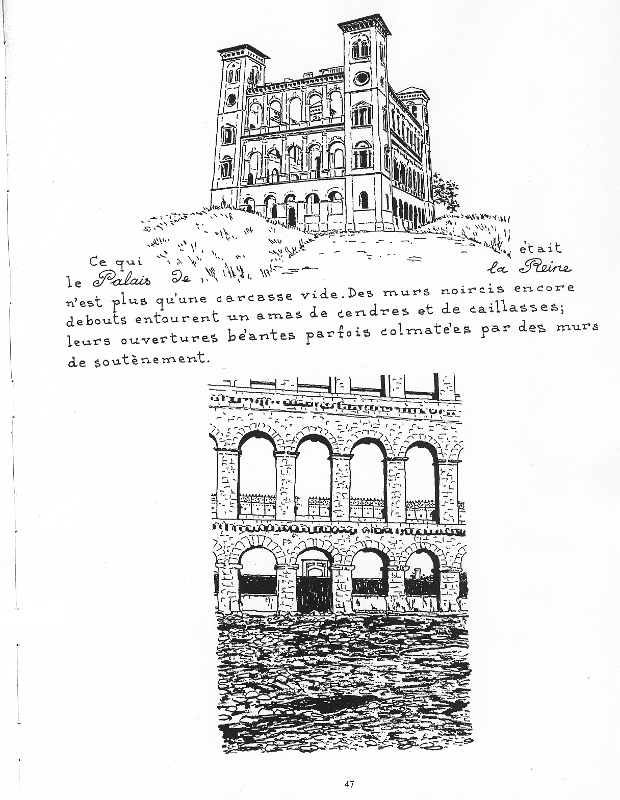 Ce qui était
le Palais de la Reine
n'est plus qu'une carcasse vide. Des murs noircis encore
debouts entourent un amas de cendres et de caillasses;
leurs ouvertures béantes parfois colmatées par des murs
de soutènement.
47